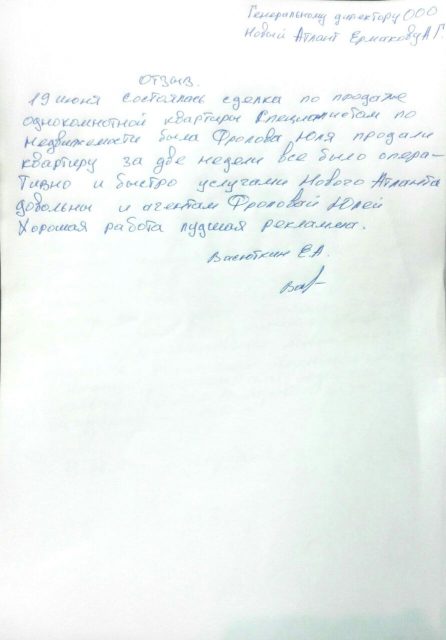 Генеральному директору ООО
Новый Атлант Ермакову А Г.
Отзыв.
19 июня состоялась сделка по продаже
однокомнотной квартиры Специалистом по
недвижемости была Фролова Юля продали
квартиру за две недели все было опера-
тивно и быстро услугами Нового Атланта
довольны и агентам Фроловой Юлей
Хорошая работа лудшая рекламма.
Васюткин Е.А.